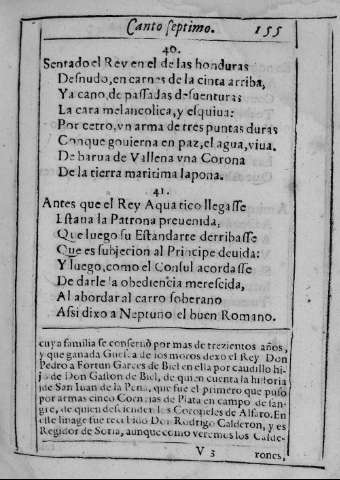 Canto septimo. 155
40.
Sentado el Rey en el de las honduras
Desnudo, en carnes de la cinta arriba,
Ya cano, de passadas desuenturas
La cara melancolica, y esquiua:
Por cetro, vn arma de tres puntas duras
Con que gouierna en paz, el agua, viua.
De barua de Vallena vna Corona
De la tierra maritima lapona.
41.
Antes que el Rey Aquatico llegasse
Estaua la Patrona preuenida,
Que luego su Estandarte derribasse
Que es subjecion al Principe deuida:
Y luego, como el Consul acordasse
De darle la obediencia merescida,
Al abordar al carro soberano
Assi dixo a Neptuno el buen Romano.
cuya familia se conseruò por mas de trezientos años,
y que ganada Guesca de los moros dexo el Rey Don
Pedro a Fortun Garces de Biel en ella por caudillo hi-
jo de Don Gaston de Biel, de quien cuenta la historia
de San Iuan de la Peña, que fue el primero que puso
por armas cinco Cornejas de Plata en campo de san-
gre, de quien descienden los Coroneles de Alfaro. En
este linage fue recebido Don Rodrigo Calderon, y es
Regidor de Soria, aunque como veremos los Calde-
V 3 rones,